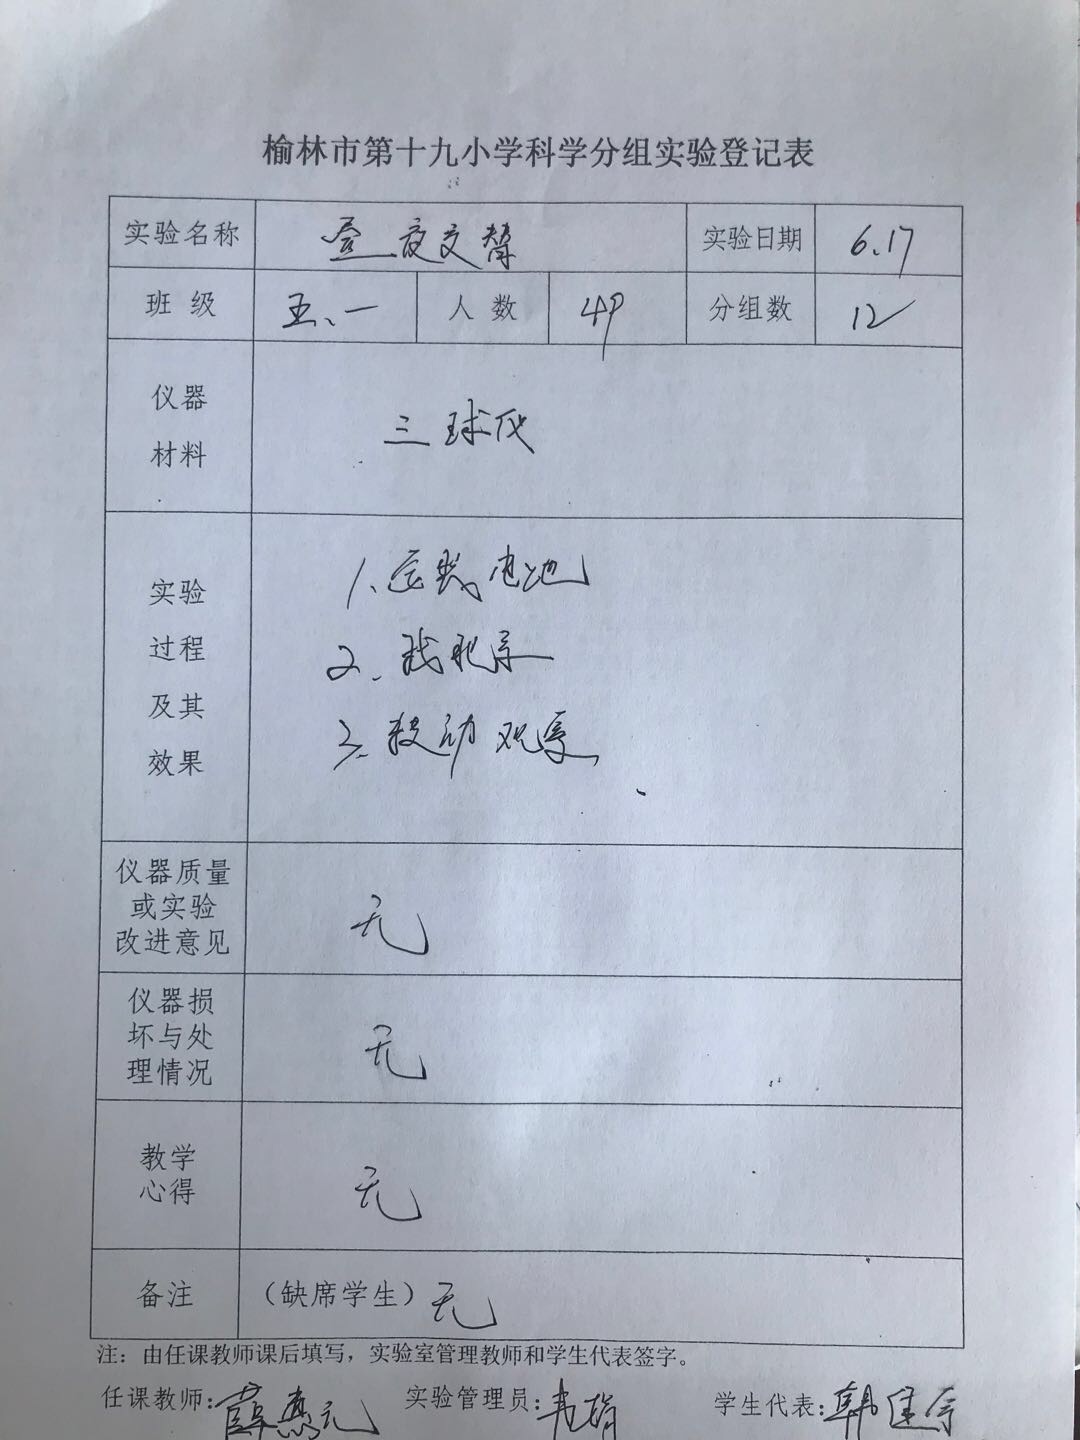 榆林市第十九小学科学分组实验登记表
实验名称 昼夜交替 实验日期 6.17
班 级 五.一 人 数 49 分组数 12
仪器
材料
三球仪
实验
过程
及其
效果
1、安装电池
2、
3、转动 观察
仪器质量
或实验
改进意见
无
仪器损
坏与处
理情况
无
教学
心得
无
备注 （缺席学生）无
注：由任课教师课后填写，实验室管理教师和学生代表签字。
任课教师： 实验管理员： 学生代表：